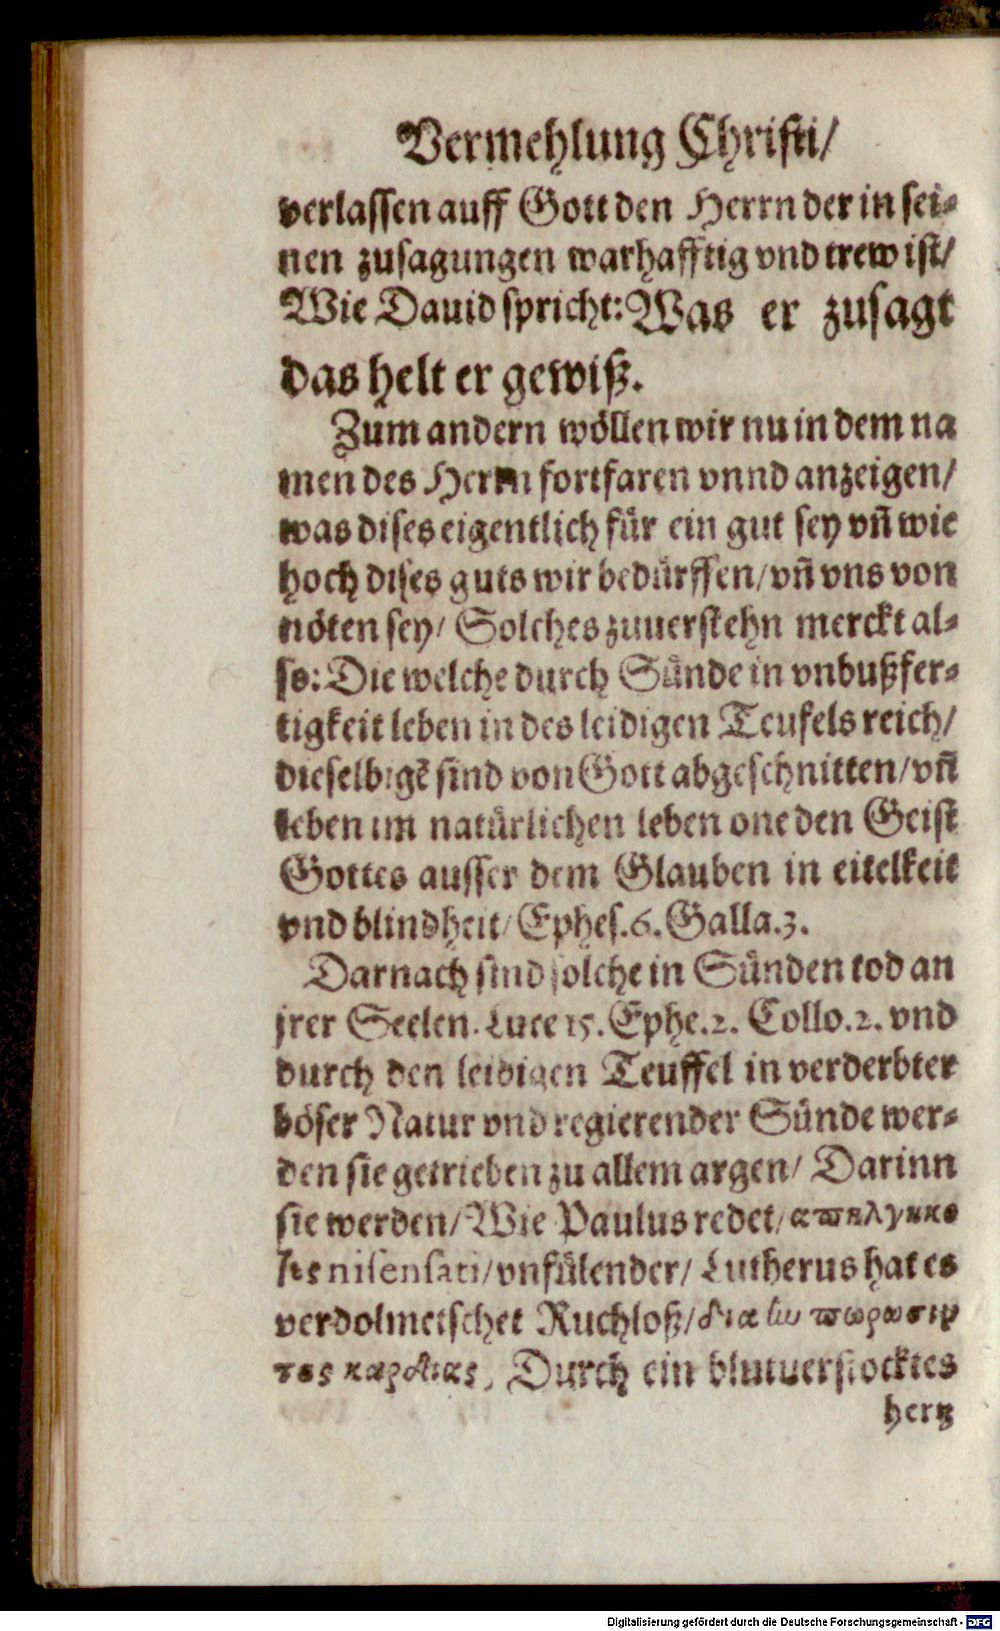 Vermehlung Christi/
verlassen auff Gott den Herrn der in sei⸗
nen zusagungen warhafftig vnd trew ist/
Wie Dauid spricht: Was er zusagt
das helt er gewiß.
Zum andern wöllen wir nu in dem na
men des Herrn fortfaren vnnd anzeigen/
was dises eigentlich für ein gut sey vñ wie
hoch dises guts wir bedürffen/ vñ vns von
nöten sey/ Solches zuuerstehn merckt al⸗
so: Die welche durch Sünde in vnbußfer⸗
tigkeit leben in des leidigen Teufels reich/
dieselbigẽ sind von Gott abgeschnitten/ vñ
leben im natürlichen leben one den Geist
Gottes ausser dem Glauben in eitelkeit
vnd blindheit/ Ephes. 6. Galla. 3.
Darnach sind solche in Sünden tod an
jrer Seelen. Luce 15. Ephe. 2. Collo. 2. vnd
durch den leidigen Teuffel in verderbter
böser Natur vnd regierender Sünde wer⸗
den sie getrieben zu allem argen/ Darinn
sie werden/ Wie Paulus redet/ απηλγηκο
τες nisensati/ vnfülender/ Lutherus hat es
verdolmetschet Ruchloß/ δια την πωρωσιν
της καρδιας, Durch ein blutuerstocktes
hertz
Digitalisierung gefördert durch die Deutsche Forschungsgemeinschaft - DFG